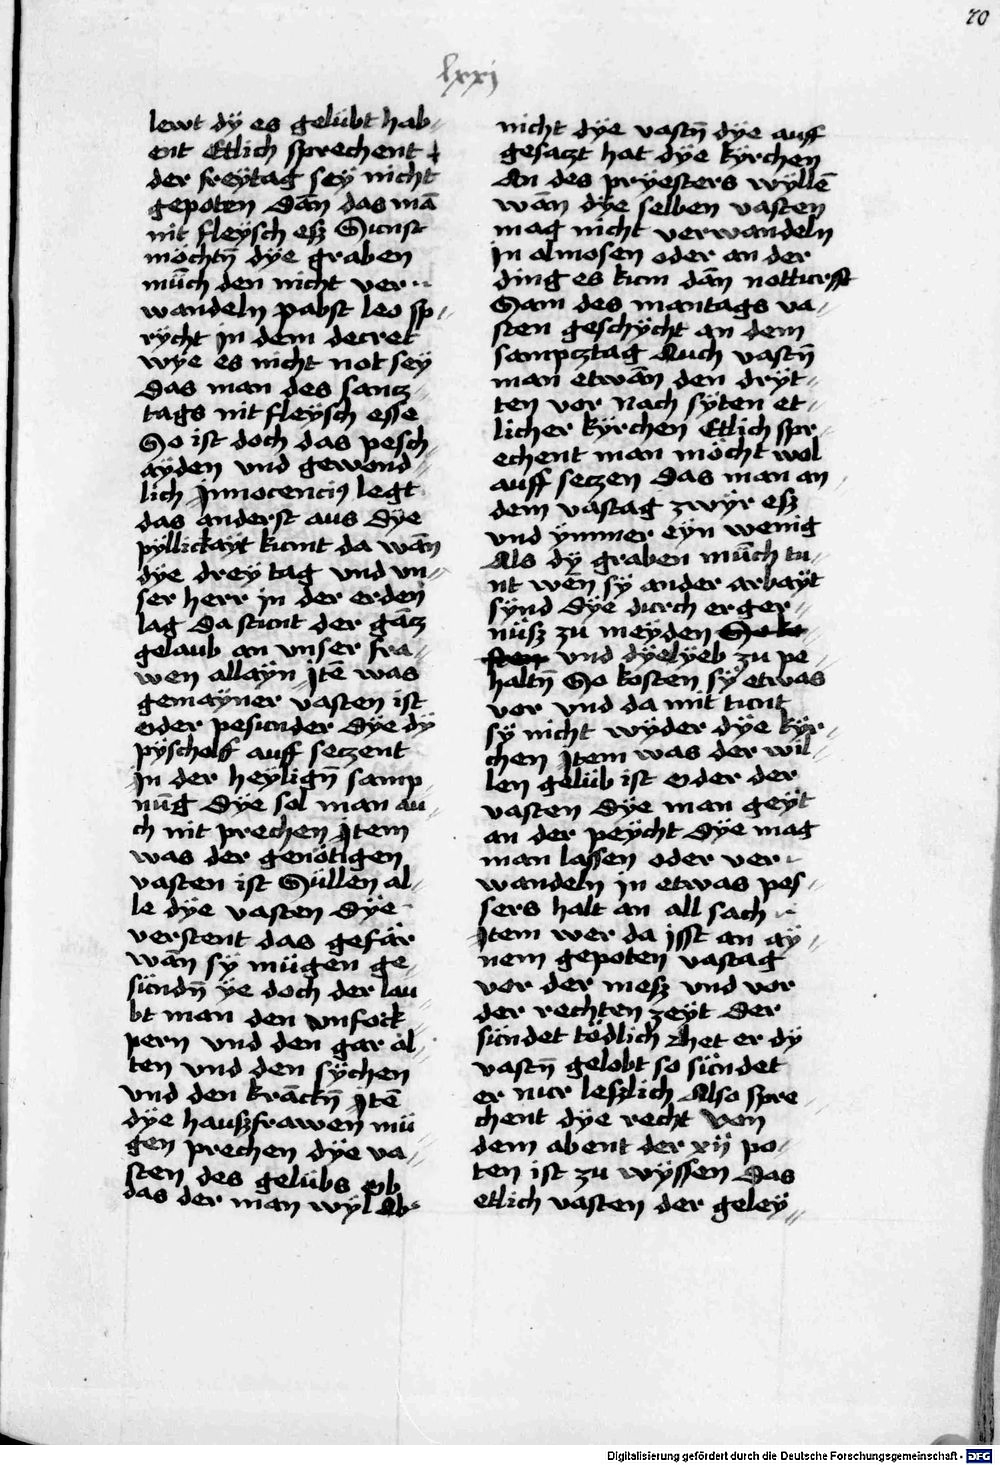 70
lxxj
lewt dÿ es gelübt hab-
ent Etlich sprechent
der freÿtag seÿ nicht
gepoten Dān das mā
nit fleÿsch eß Sunst
möchtn̄ dÿe graben
mūch den nicht ver-
wandeln pabst leo sp-
rÿcht jn dem decret
wÿe es nicht not seÿ
Das man des samcz-
tags nit fleÿsch esse
So ist doch das pesch-
aÿden vnd gewond-
lich Jnnocencius legt
das anderst aus Dÿe
pÿllickaÿt kumt da wān
dÿe dreÿ tag vnd vn-
ser herr jn der erden
lag Da stunt der gācz
gelaub an vnser fra-
wen allaÿn Jtē was
gemaÿner vasten ist
oder pesunder Dÿe dÿ
pÿscholff auff seczent
Jn der heÿlign̄ samp-
nūg Dÿe sol man au-
ch nit prechen Jtem
was der genötigen
vasten ist Süllen al-
le dÿe vasten Dÿe
verstent das gefär
wān sÿ mügen ge-
sündn̄ ÿe doch der lau-
bt man den vnfock-
pern vnd den gar al-
ten vnd den sÿchen
vnd den krāckn̄ Jtē
dÿe haußfrawen mü-
gen prechen dÿe va-
sten des gelübs ob
das der man wÿl Ab-
nicht dÿe vastn̄ dÿe auff
gesaczt hat dÿe kÿrchen
An des prÿesters wÿllē
wān dÿe selben vasten
mag nicht verwandeln
jn almosen oder an der
ding es kum dān notturfft
Sam des mantags va-
sten geschÿcht an dem
sampcztag Auch vastn̄
man etwān den drÿt-
ten vor Nach sÿten et-
licher kÿrchen Etlich spr-
echent man möcht wol
auff seczen Das man an
dem vastag zwÿr eß
vnd ÿmmer eÿn wenig
Als dÿ graben mūch tu-
nt wēn sÿ ander arbaÿt
sÿnd Dÿe durch erger-
nüß zu meÿden
vnd dÿelÿeb zu pe-
haltn̄ So kosten sÿ etwas
vor vnd da mit tunt
sÿ nicht wÿder dÿe kÿr-
chen Jtem was der wil-
len gelüb ist oder der
vasten Dÿe man geÿt
an der peÿcht Dÿe mag
man lassen oder ver-
wandeln jn etwas pes-
sers halt an all sach
Jtem wer da jsst an aÿ-
nem gepoten vastag
vor der meß vnd vor
der rechten zeÿt Der
sündet tödlich het er dÿ
vastn̄ gelobt so sündet
er nur leßlich Also spre-
chent dÿe recht Von
dem abent der xij po-
ten ist zu wÿssen Das
etlich vasten der geleÿ-
Digitalisierung gefördert durch die Deutsche Forschungsgemeinschaft - DFG